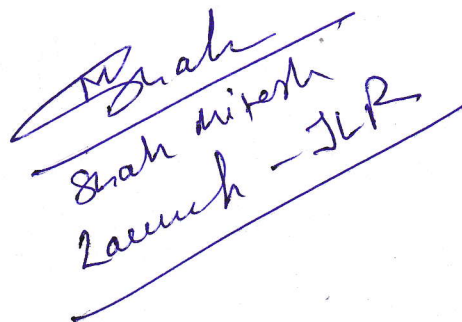 Shah
Shah Mitesh
Launch - JLR